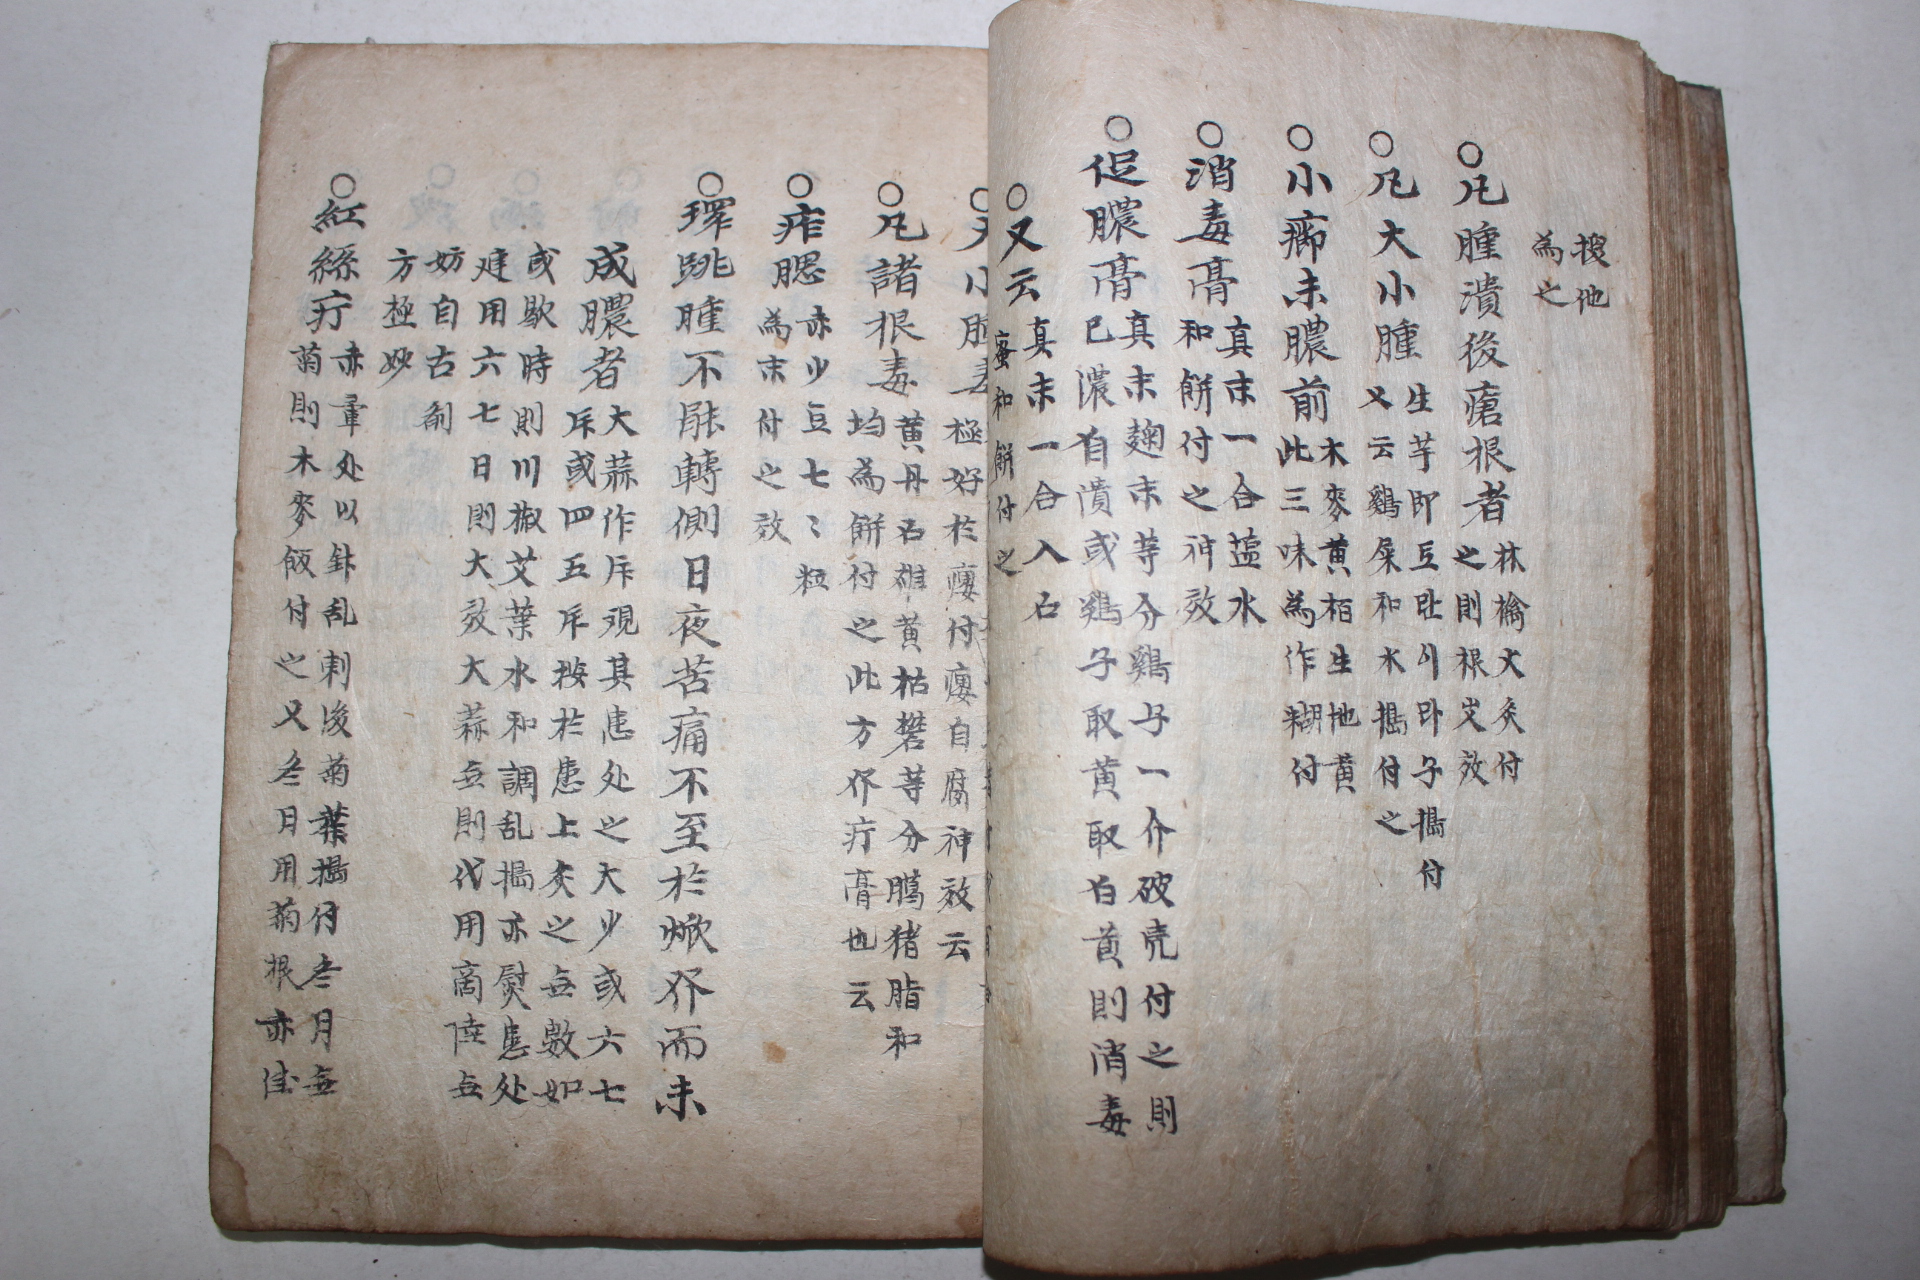 搜他
為之
○凡腫潰後瘡根者
林檎大灸付
之則根出效
○凡大小腫
生芋即豆 卟子搗付
又云鷄屎和木搗付之
○小癤未膿前
木麥黄栢生地黄
此三味為作糊付
○消毒膏
真末一合蓝水
和餅付之神效
○促膿膏
真末麹末等分鷄子一介破壳付之則
已濃自潰或鷄子取黄取白黄則消毒
○又云
真末一合入石
蜜和餅付之
小腫毒
極好於瘻付瘻自腐神效云
○凡諸根毒
黄丹石雄黄枯礬等分臈猪脂和
均為餅付之此方疥疔膏也云
○痄腮
亦少豆七〻粒
為末付之效
○環跳腫不能轉側日夜苦痛不至於焮疥而未
成膿者
大蒜作片覌其患处之大少或六七
片或四五片按於患上灸之無數如
或歇時則川椒艾葉水和調乱搗亦熨患处
用六七日則大效大蒜無則代用商陸無
妨自古
方極妙
○紅絲疔
亦暈处以針乱刺後菊葉搗付冬月無
菊則木麥飯付之又冬月用菊根亦佳